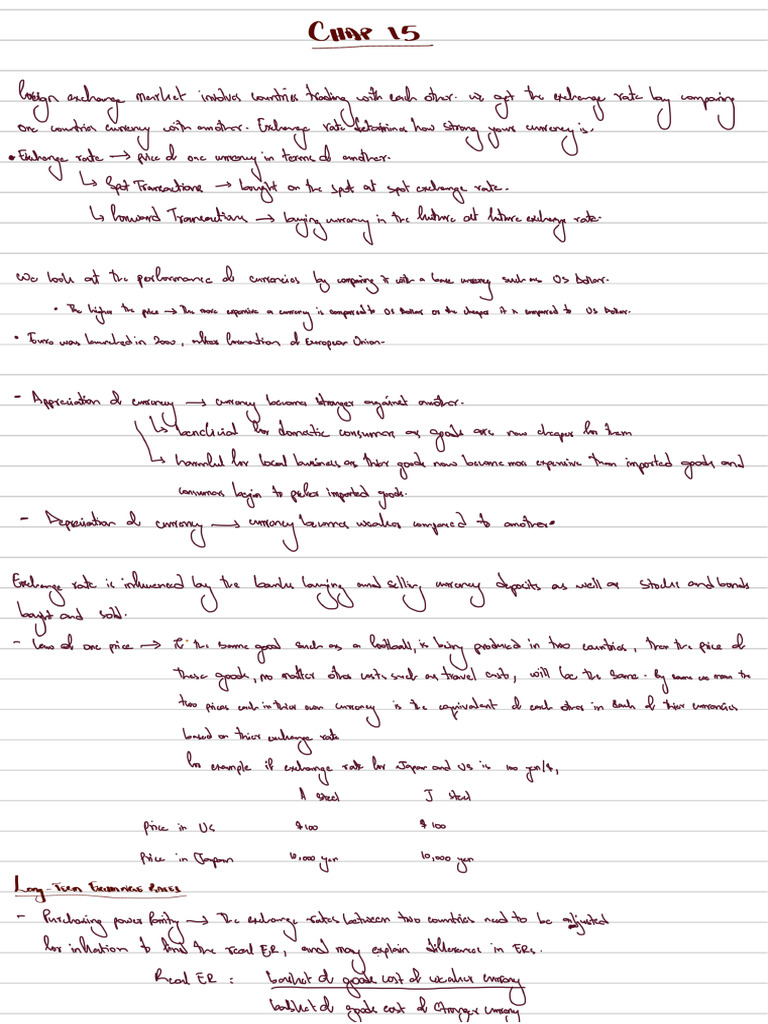 CHAP 15
Foreign exchange market involves countries trading with each other. We get the exchange rate by comparing
one countries currency with another. Exchange rate determines how strong your currency is.
• Exchange rate → price of one currency in terms of another.
↳ Spot Transactions → bought on the spot at spot exchange rate.
↳ Forward Transactions → buying currency in the future at future exchange rate.
We look at the performance of currencies by comparing it with a base currency such as US Dollar.
• The higher the price → The more expensive a currency is compared to US Dollar or the cheaper it is compared to US Dollar.
• Euro was launched in 2000, after formation of European Union.
- Appreciation of currency → currency becomes stronger against another.
↳ beneficial for domestic consumers as goods are now cheaper for them
↳ harmful for local business as thier goods now become more expensive than imported goods and
consumers begin to prefer imported goods.
- Depreciation of currency → currency becomes weaker compared to another.
Exchange rate is influenced by the banks buying and selling currency deposits as well as stocks and bonds
bought and sold.
- Law of one price → If the same good such as a football, is being produced in two countries, then the price of
these goods, no matter other costs such as travel costs, will be the same. By same we mean the
two prices each in thier own currency is the equivalent of each other in each of thier currencies
based on thier exchange rate
for example if exchange rate for Japan and US is 100 yen/$,
A steel J steel
Price in US $100 $100
Price in Japan 10,000 yen 10,000 yen
LONG-TERM EXCHANGE RATES
- Purchasing power Parity → The exchange rates between two countries need to be adjusted
for inflation to find the real ER, and may explain difference in ERs.
Real ER : basket of goods cost of weaker currency
basket of goods cost of stronger currency